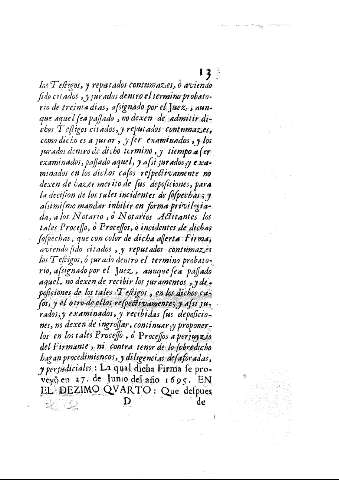 13
los Testigos, y reputados contumazes, ò aviendo
sido citados, y jurados dentro el termino probato-
rio de treinta dias, assignado por el Juez, aun-
que aquel sea passado, no dexen de admitir di-
chos Testigos citados, y reputados contumazes,
como dicho es a jurar, y ser examinados, y los
jurados dentro de dicho termino, y tiempo a ser
examinados, passado aquel, y assi jurados, y exa-
minados en los dichos casos respectivamente no
dexen de hazer merito de sus deposiciones, para
la decision de los tales incidentes de sospechas; y
assimismo mandar inhibir en forma privilegia-
da, a los Notario, ò Notarios Actitantes los
tales Processo, ò Processos, ò incidentes de dichas
sospechas, que con color de dicha asserta Firma,
aviendo sido citados, y reputados contumazes
los Testigos, ò jurado dentro el termino probato-
rio, assignado por el Juez, aunque sea passado
aquel, no dexen de recibir los juramentos, y de-
posiciones de los tales Testigos, en los dichos ca-
sos, y el otro de ellos respectivamente; y assi ju-
rados, y examinados, y recibidas sus deposicio-
nes, no dexen de ingrossar, continuar, y proponer-
los en los tales Processo, ò Processos a perjuyzio
del Firmante, ni contra tenor de lo sobredicho
hagan procedimientos, y diligencias desaforadas,
y perjudiciales: La qual dicha Firma se pro-
veyò en 27. de Junio del año 1695. EN
EL DEZIMO QVARTO: Que despues
D de